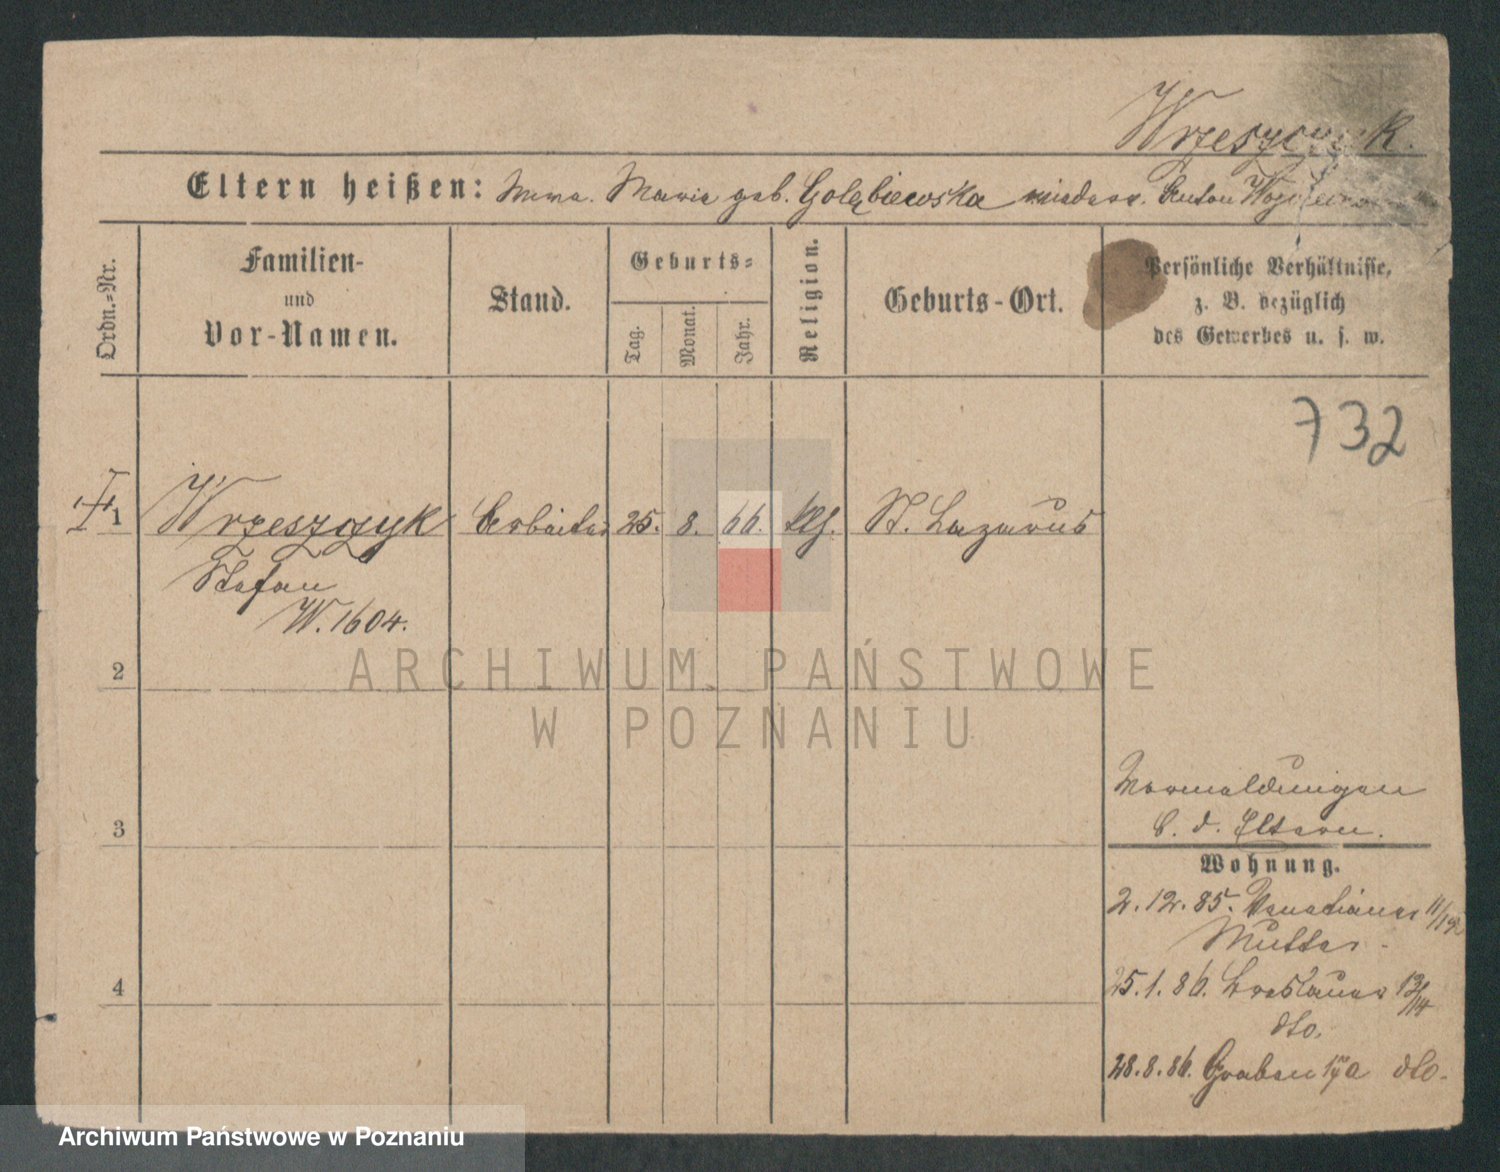 Wrzeszczyk.
Eltern heißen: Wwe. Maria geb. Gołąbiewska wiederv. Anton
Ordn.-Nr.
Familien- und Vor-Namen.
Stand.
Geburts-
Tag.
Monat.
Jahr.
Religion.
Geburts-Ort.
Persönliche Verhältnisse,
z. B. bezüglich
des Gewerbes u. s. w.
732
1 Wrzeszczyk Arbeiter 25. 8. 66. kth. St. Lazarus
Stefan
W. 1604.
2
ARCHIWUM PAŃSTWOWE
W POZNANIU
3
4
Vormeldungen
b. d. Eltern.
Wohnung.
2.12.85. Venetianer
Mutter.
25.1.86. Breslauer 13/14
dto.
28.8.86. Graben dto.
Archiwum Państwowe w Poznaniu